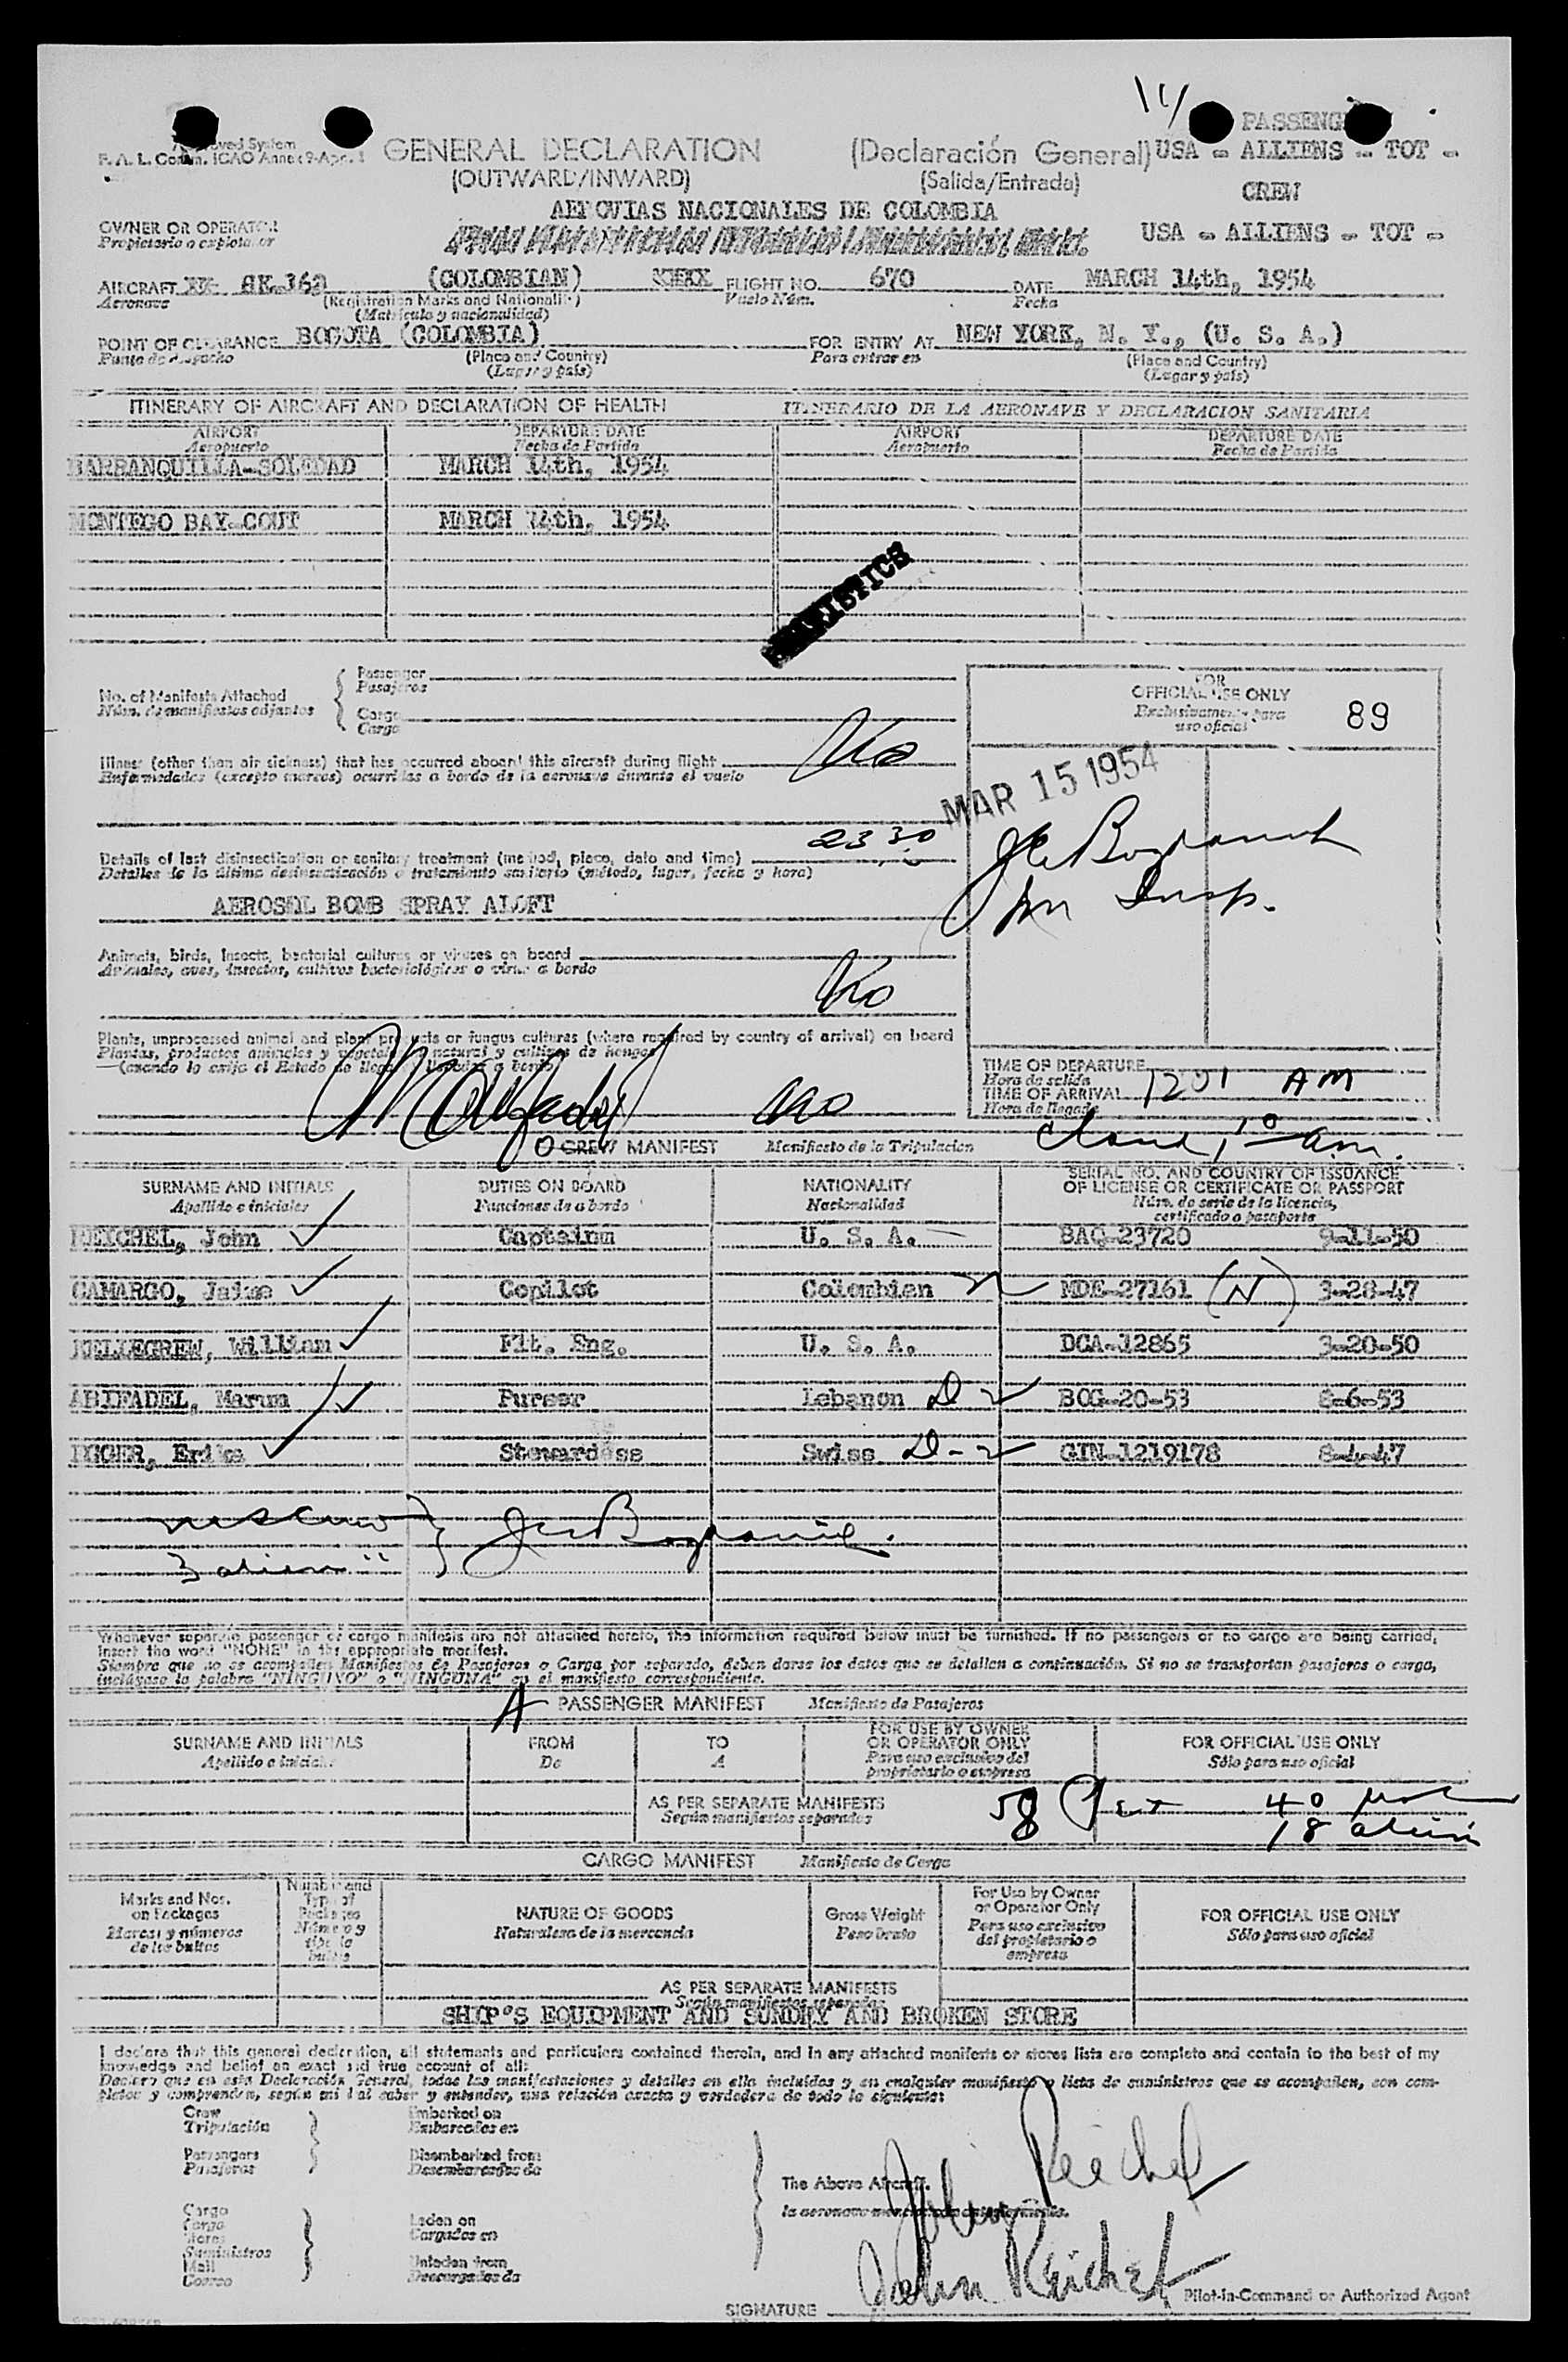 14/
PASSENG
F. A. L. Comm. ICAO Annex 9-App. 1
GENERAL DECLARATION (Declaración General) USA - ALLIENS - TOT -
(OUTWARD/INWARD) (Salida/Entrada)
CREW
AEROVIAS NACIONALES DE COLOMBIA
OWNER OR OPERATOR USA - ALLIENS - TOT -
Propietario o explotador
AIRCRAFT HK 162 (COLOMBIAN) FLIGHT NO. 670 DATE MARCH 14th, 1954
Aeronave (Registration Marks and Nationality) Vuelo Núm. Fecha
(Matrícula y nacionalidad)
POINT OF CLEARANCE BOGOTA (COLOMBIA) FOR ENTRY AT NEW YORK, N. Y., (U. S. A.)
Punto de despacho (Place and Country) Para entrar en (Place and Country)
(Lugar y país) (Lugar y país)
ITINERARY OF AIRCRAFT AND DECLARATION OF HEALTH ITINERARIO DE LA AERONAVE Y DECLARACION SANITARIA
AIRPORT DEPARTURE DATE AIRPORT DEPARTURE DATE
Aeropuerto Fecha de Partida Aeropuerto Fecha de Partida
BARRANQUILLA-SOLEDAD MARCH 14th, 1954
MONTEGO BAY-COUT MARCH 14th, 1954
STATISTICS
Passenger
Pasajeros
No. of Manifests Attached
Núm. de manifiestos adjuntos
Cargo
Cargo
FOR
OFFICIAL USE ONLY
Exclusivamente para
uso oficial
89
Illness (other than air sickness) that has occurred aboard this aircraft during flight No
Enfermedades (excepto mareos) ocurridas a bordo de la aeronave durante el vuelo
MAR 15 1954
Details of last disinsectization or sanitary treatment (method, place, date and time) 2330
Detalles de la última desinsectización o tratamiento sanitario (método, lugar, fecha y hora)
Imm Insp.
AEROSOL BOMB SPRAY ALOFT
Animals, birds, insects, bacterial cultures or viruses on board
Animales, aves, insectos, cultivos bacteriológicos o virus a bordo
No
Plants, unprocessed animal and plant products or fungus cultures (where required by country of arrival) on board
Plantas, productos animales y vegetales natural y cultivos de hongos
(cuando lo exija el Estado de llegada) llevados a bordo
No
TIME OF DEPARTURE
Hora de salida
TIME OF ARRIVAL 1201 AM
Hora de llegada
O CREW MANIFEST Manifiesto de la Tripulacion
SURNAME AND INITIALS DUTIES ON BOARD NATIONALITY SERIAL NO. AND COUNTRY OF ISSUANCE
OF LICENSE OR CERTIFICATE OR PASSPORT
Apellido e iniciales Funciones de a bordo Nacionalidad Núm. de serie de la licencia,
certificado o pasaporte
REICHEL, John Captainm U. S. A. BAQ-23720 9-11-50
CAMARGO, Jaime Copilot Colombian MDE-27161 (N) 3-28-47
PELLEGREW, William Flt. Eng. U. S. A. DCA-12865 3-20-50
ABIFADEL, Marum Purser Lebanon D-2 BOG-20-53 8-6-53
EGGER, Erika Stewardess Swiss D-2 GIN-1219178 8-4-47
3 aliens
Whenever separate passenger or cargo manifests are not attached hereto, the information required below must be furnished. If no passengers or no cargo are being carried,
insert the word "NONE" in the appropriate manifest.
Siempre que no se acompañen Manifiestos de Pasajeros o Carga por separado, deben darse los datos que se detallan a continuación. Si no se transportan pasajeros o carga,
inclúyase la palabra "NINGUNO" o "NINGUNA" en el manifiesto correspondiente.
A PASSENGER MANIFEST Manifiesto de Pasajeros
SURNAME AND INITIALS FROM TO FOR USE BY OWNER
OR OPERATOR ONLY FOR OFFICIAL USE ONLY
Apellido e iniciales De A Para uso exclusivo del
propietario o empresa Sólo para uso oficial
AS PER SEPARATE MANIFESTS
Según manifiestos separados
58 40
18 aliens
CARGO MANIFEST Manifiesto de Carga
Marks and Nos.
on Packages
Marcas y números
de los bultos
Number and
Type of
Packages
Número y
tipo de
bultos
NATURE OF GOODS
Naturaleza de la mercancía
Gross Weight
Peso bruto
For Use by Owner
or Operator Only
Para uso exclusivo
del propietario o
empresa
FOR OFFICIAL USE ONLY
Sólo para uso oficial
AS PER SEPARATE MANIFESTS
Según manifiestos separados
SHIP'S EQUIPMENT AND SUNDRY AND BROKEN STORE
I declare that this general declaration, all statements and particulars contained therein, and in any attached manifests or stores lists are complete and contain to the best of my
knowledge and belief an exact and true account of all:
Declaro que en esta Declaración General, todas las manifestaciones y detalles en ella incluidos y en cualquier manifiesto o lista de suministros que se acompañen, son com-
pletos y comprenden, según mi leal saber y entender, una relación exacta y verdadera de todo lo siguiente:
Crew Embarked on
Tripulación Embarcados en
Passengers Disembarked from
Pasajeros Desembarcados de
The Above Aircraft.
John Reichel
Cargo Laden on
Carga Cargados en
Stores
Suministros
Mail Unladen from
Correo Descargados de
John Reichel
Pilot-in-Command or Authorized Agent
SIGNATURE